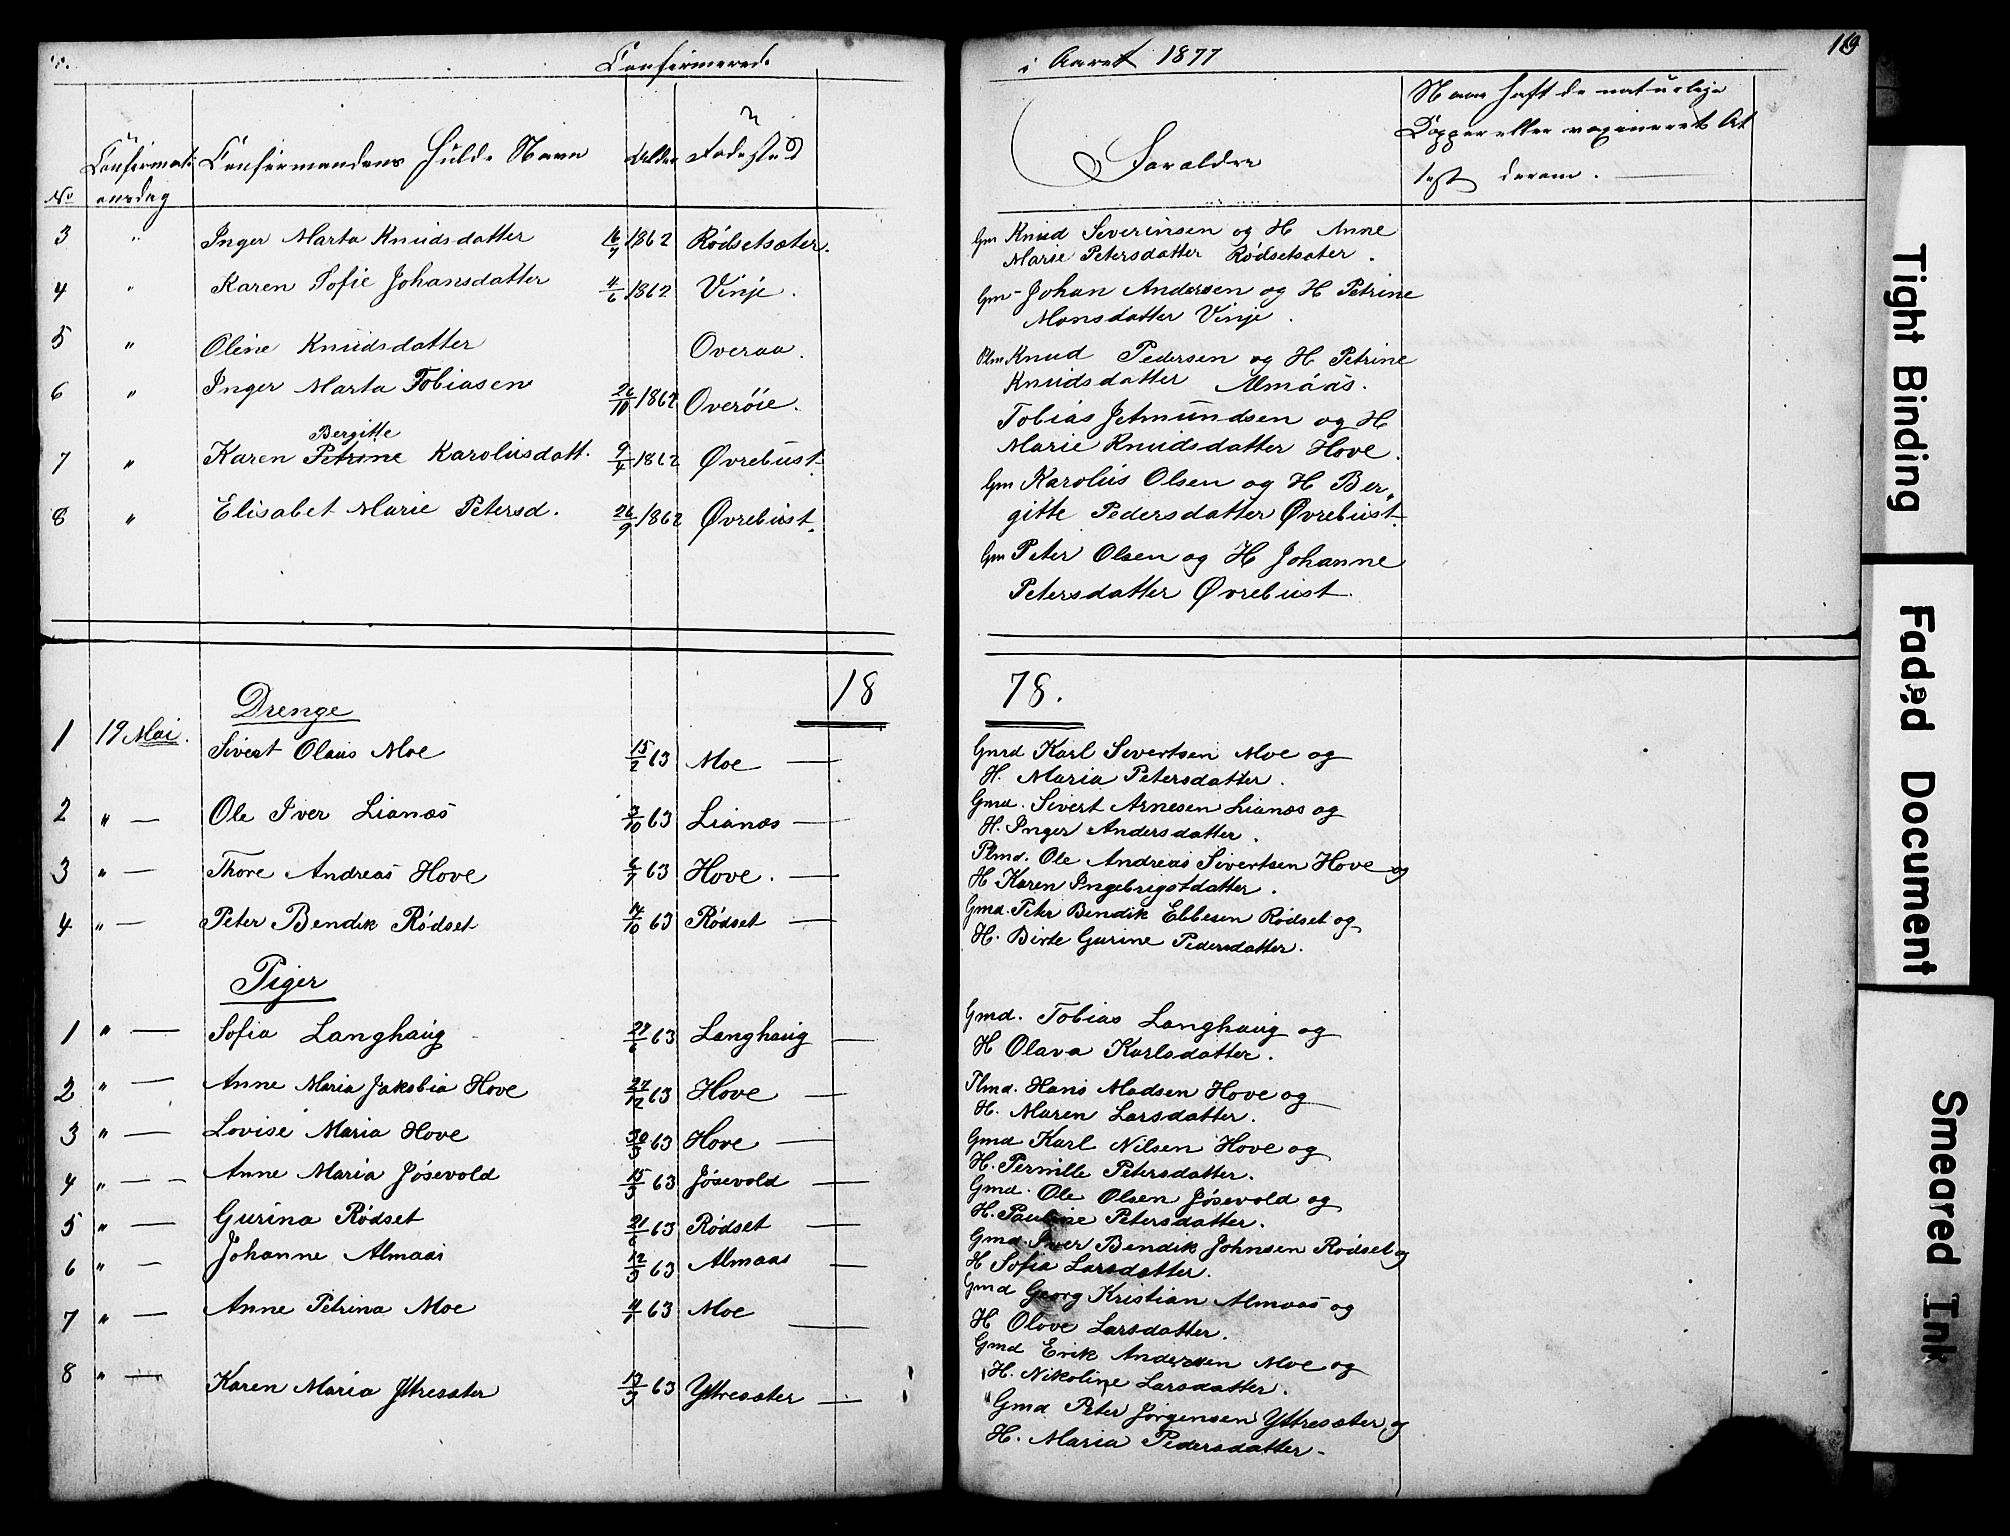 Confirmerede
i Aaret 1877
119
No
Confirmationsdag
Confirmandens fulde Navn
Alder
Fødested
Forældre
Naar haft de naturlige
Kopper eller vaxineret At
test derom.
3 " Inger Marta Knudsdatter 16/7 1862 Rödsetsæter.
Gm Knud Severinsen og H Anne
Marie Petersdatter Rödsetsæter.
4 " Karen Sofie Johansdatter 4/6 1862 Vinje.
Gm Johan Andersen og H Petrine
Monsdatter Vinje.
5 " Oline Knudsdatter Overaa.
Plm Knud Pedersen og H Petrine
Knudsdatter Almaas.
6 " Inger Marta Tobiasen 26/10 1862 Overöie.
Tobias Jetmundsen og H
Marie Knudsdatter Hove.
Bergitte
7 " Karen Petrine Karolusdatt. 9/4 1862 Øvrebust.
Gm Karolus Olsen og H Ber„
gitte Pedersdatter Øvrebust.
8 " Elisabet Marie Petersd. 26/9 1862 Øvrebust.
Gm Peter Olsen og H Johanne
Petersdatter Øvrebust.
18 78.
Drenge
1 19 Mai. Sivert Olaus Moe 15/2 63 Moe —
Gmd Karl Sivertsen Moe og
H. Maria Petersdatter.
2 " — Ole Iver Lianæs 3/10 63 Lianæs —
Gmd. Sivert Arnesen Lianæs og
H. Inger Andersdatter.
3 " — Thore Andreas Hove 6/7 63 Hove. —
Plmd. Ole Andreas Sivertsen Hove og
H Karen Ingebrigtdatter.
4 " — Peter Bendik Rödset 14/10 63 Rödset —
Gmd. Peter Bendik Ebbesen Rödset og
H. Birte Gurine Pedersdatter.
Piger
1 " — Sofia Langhaug 27/6 63 Langhaug —
Gmd. Tobias Langhaug og
H Olava Karlsdatter.
2 " — Anne Maria Jakobia Hove 27/12 63 Hove —
Plmd. Hans Madsen Hove og
H. Maren Larsdatter.
3 " — Lovise Maria Hove 30/3 63 Hove —
Gmd Karl Nilsen Hove og
H. Pernille Petersdatter.
4 " — Anne Maria Jösevold 15/3 63 Jösevold —
Gmd. Ole Olsen Jösevold og
H. Pauline Petersdatter.
5 " — Gurina Rödset 21/6 63 Rödset —
Gmd. Iver Bendik Johnsen Rödset og
H Sofia Larsdatter.
6 " — Johanne Almaas 12/3 63 Almaas —
Gmd Georg Kristian Almaas og
H Olove Larsdatter.
7 " — Anne Petrina Moe 4/7 63 Moe —
Gmd Erik Andersen Moe og
H. Nikoline Larsdatter.
8 " — Karen Maria Yttresæter 13/3 63 Yttresæter —
Gmd Peter Jørgensen Yttresæter og
H. Maria Pedersdatter.
Tight Binding
Faded Document
Smeared Ink